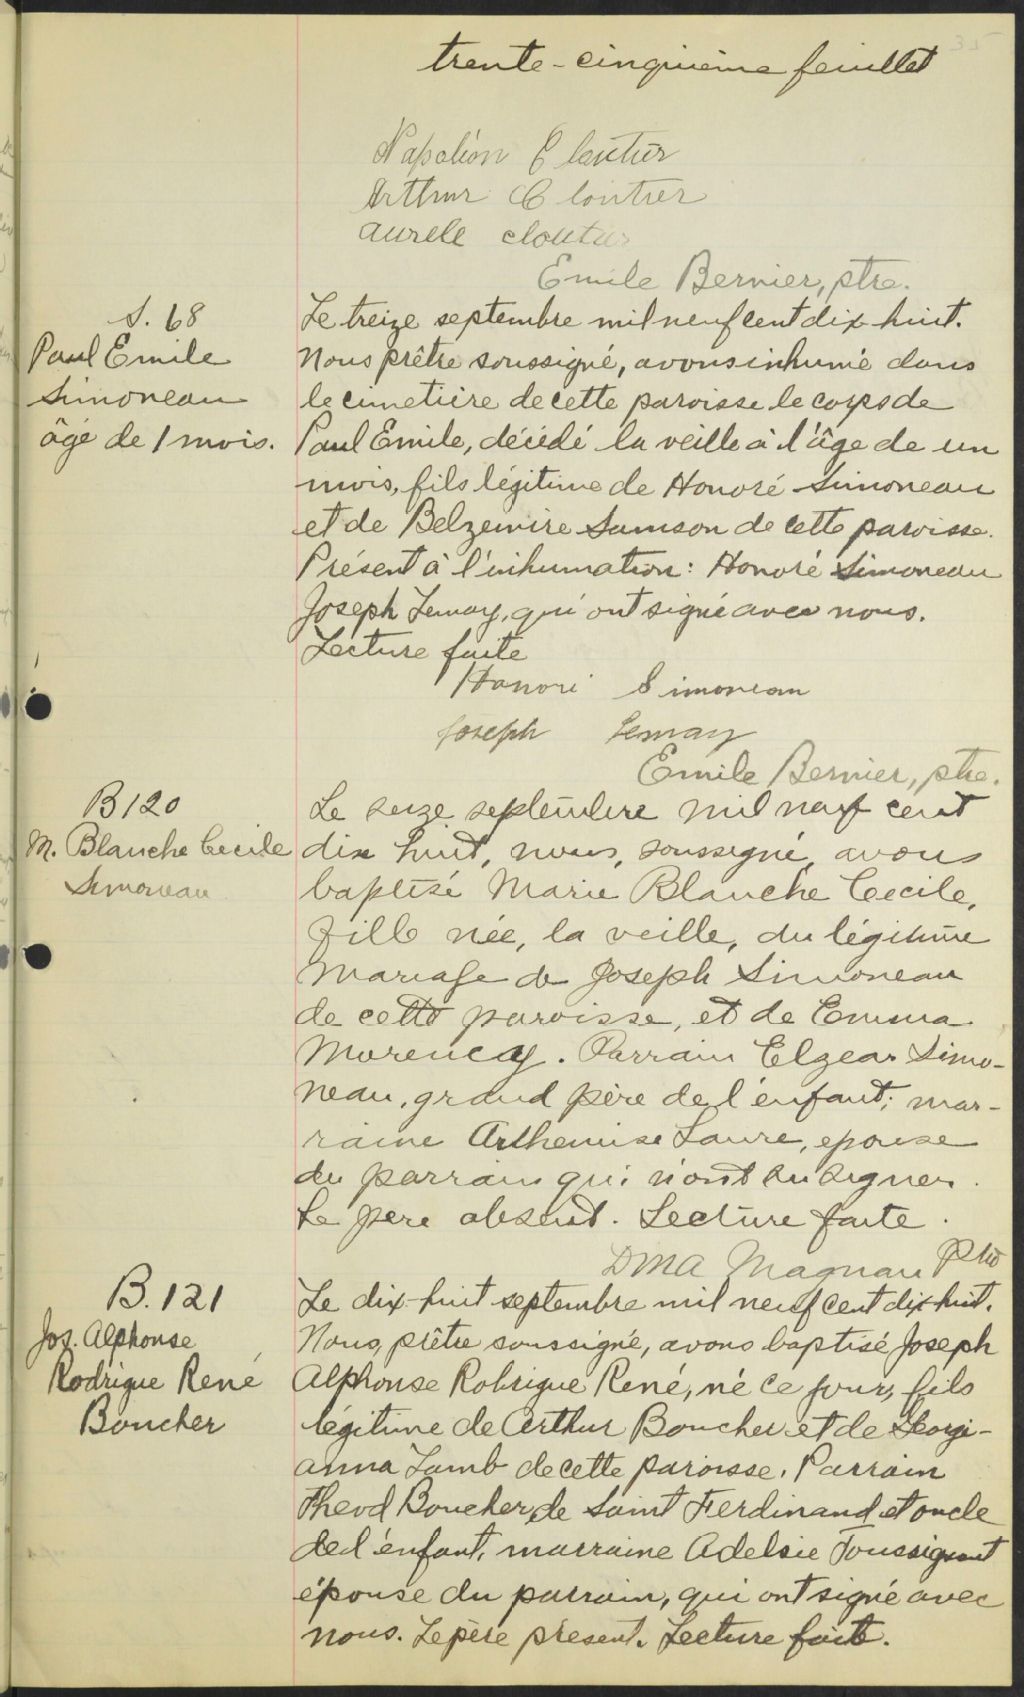 35
trente-cinquième feuillet
Napoléon Cloutier
Arthur Cloutier
Aurele Cloutier
Emile Bernier, ptre.
S. 68
Paul Emile
Simoneau
âgé de 1 mois.
Le treize septembre mil neuf cent dix-huit.
Nous prêtre soussigné, avons inhumé dans
le cimetière de cette paroisse le corps de
Paul Emile, décédé la veille à l'âge de un
mois, fils légitime de Honoré Simoneau
et de Belzemire Samson de cette paroisse.
Présent à l'inhumation: Honoré Simoneau
Joseph Lemay, qui ont signé avec nous.
Lecture faite
Honori Simoneau
Joseph Lemay
Emile Bernier, ptre.
B 120
M. Blanche Cecile
Simoneau
Le seize septembre mil neuf cent
dix huit, nous, soussigné, avons
baptisé Marie Blanche Cecile,
fille née, la veille, du légitime
mariage de Joseph Simoneau
de cette paroisse, et de Emma
Morency. Parrain Elzear Simo-
neau, grand père de l'enfant; mar-
raine Arthemise Laure, epouse
du parrain qui n'ont su signer.
Le père absent. Lecture faite.
DMA Magnan Ptre
B. 121
Jos. Alphonse
Rodrigue René
Boucher
Le dix-huit septembre mil neuf cent dix-huit.
Nous, prêtre soussigné, avons baptisé Joseph
Alphonse Rodrigue René, né ce jour, fils
légitime de Arthur Boucher et de Georgi-
anna Lamb de cette paroisse. Parrain
Theod Boucher, de Saint Ferdinand et oncle
de l'enfant, marraine Adelsie Toussignant
épouse du parrain, qui ont signé avec
nous. Le père présent. Lecture faite.